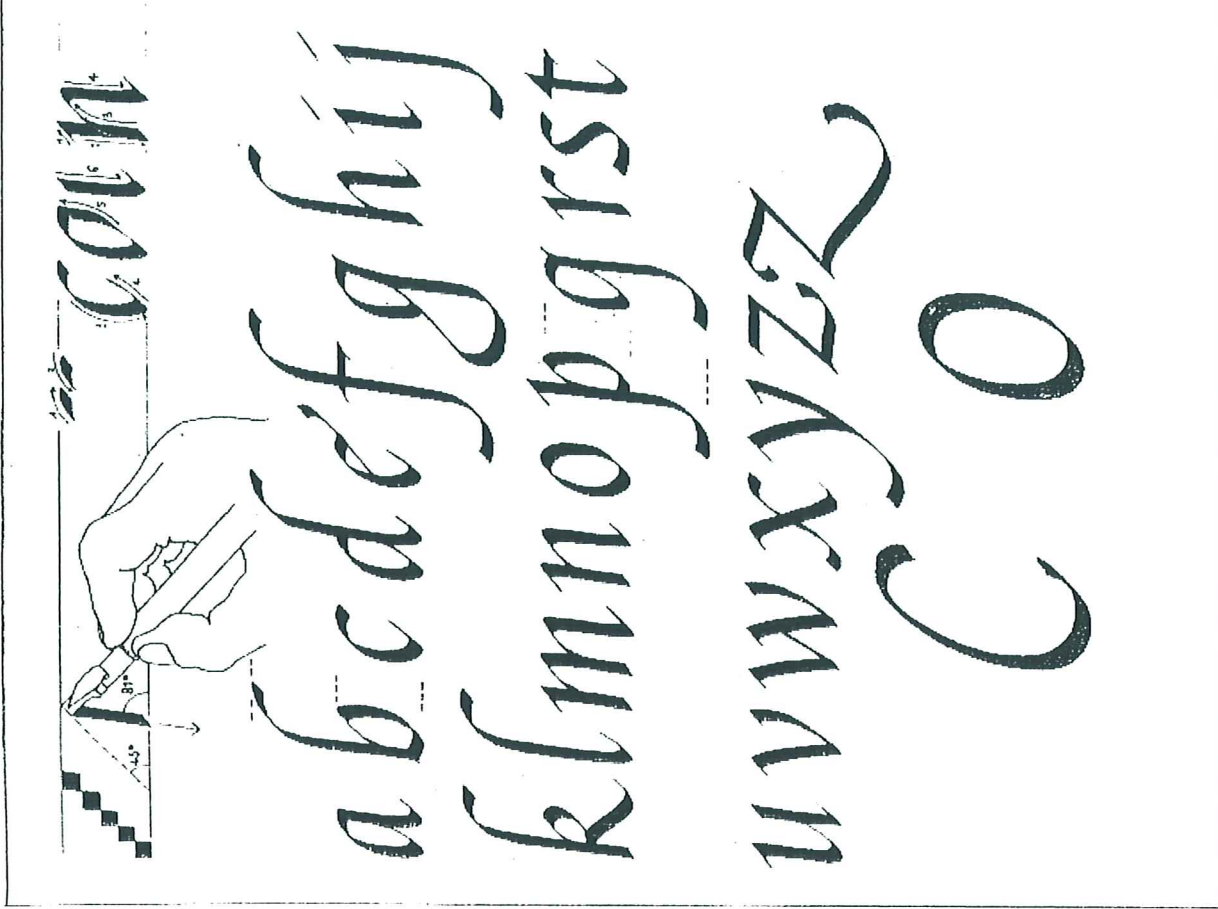 45° 81° c a n
a b c d e f g h i j
k l m n o p q r s t
u v w x y z z
C O